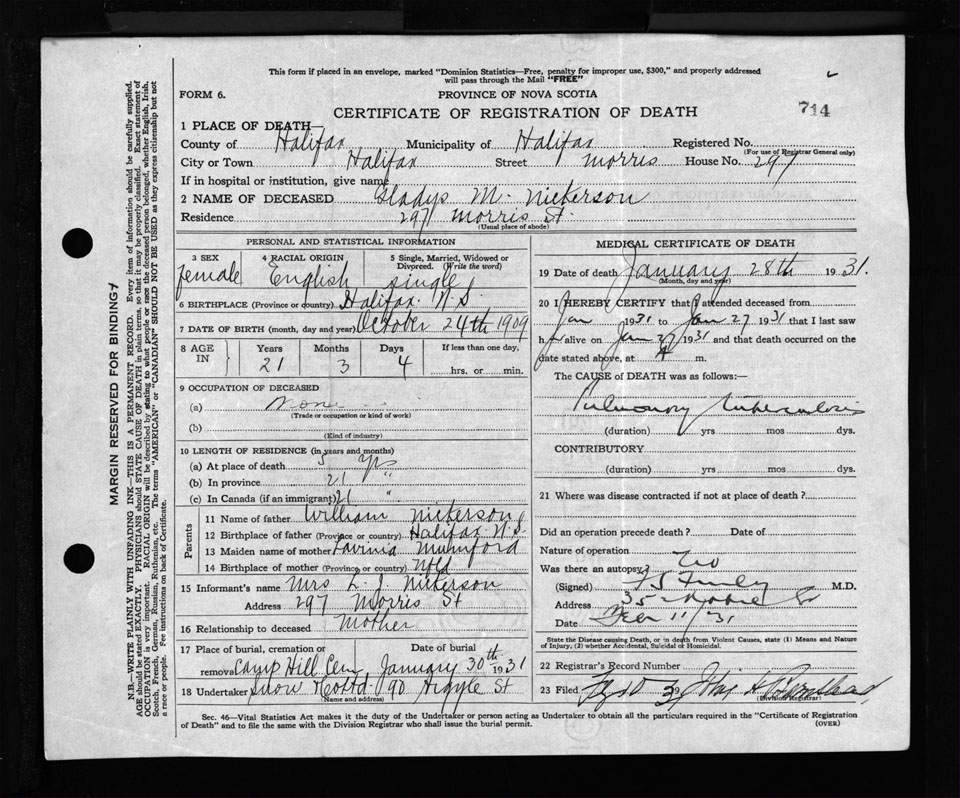 This form if placed in an envelope, marked "Dominion Statistics—Free, penalty for improper use, $300," and properly addressed
will pass through the Mail "FREE"
FORM 6.
PROVINCE OF NOVA SCOTIA
714
CERTIFICATE OF REGISTRATION OF DEATH
1 PLACE OF DEATH—
County of Halifax Municipality of Halifax Registered No.
(For use of Registrar General only)
City or Town Halifax Street Morris House No. 297
If in hospital or institution, give name
2 NAME OF DECEASED Gladys M. Nickerson
Residence 297 Morris St.
(Usual place of abode)
PERSONAL AND STATISTICAL INFORMATION
3 SEX 4 RACIAL ORIGIN 5 Single, Married, Widowed or Divorced. (Write the word)
female English single
6 BIRTHPLACE (Province or country) Halifax N.S.
7 DATE OF BIRTH (month, day and year) October 24th 1909
8 AGE IN Years Months Days If less than one day,
21 3 4 hrs. or min.
9 OCCUPATION OF DECEASED
(a) None
(Trade or occupation or kind of work)
(b)
(Kind of industry)
10 LENGTH OF RESIDENCE (in years and months)
(a) At place of death 5 yrs
(b) In province 21 "
(c) In Canada (if an immigrant) 21 "
Parents
11 Name of father William Nickerson
12 Birthplace of father (Province or country) Halifax N.S.
13 Maiden name of mother Lavinia Mumford
14 Birthplace of mother (Province or country) Nfld
15 Informant's name Mrs L. J. Nickerson
Address 297 Morris St
16 Relationship to deceased Mother
17 Place of burial, cremation or removal Date of burial
Camp Hill Cem January 30th 1931
18 Undertaker Snow & Co Ltd 90 Argyle St
(Name and address)
MEDICAL CERTIFICATE OF DEATH
19 Date of death January 28th 1931.
(Month, day and year)
20 I HEREBY CERTIFY that I attended deceased from
Jan 1931 to Jan 27 1931 that I last saw
her alive on Jan 27 1931 and that death occurred on the
date stated above, at m.
The CAUSE of DEATH was as follows:—
Pulmonary Tuberculosis
(duration) yrs mos dys.
CONTRIBUTORY
(duration) yrs mos dys.
21 Where was disease contracted if not at place of death?
Did an operation precede death? Date of
Nature of operation
Was there an autopsy? No
(Signed) M.D.
Address 35
Date 11/31
State the Disease causing Death, or in death from Violent Causes, state (1) Means and Nature
of Injury, (2) whether Accidental, Suicidal or Homicidal.
22 Registrar's Record Number
23 Filed
(Division Registrar)
Sec. 46—Vital Statistics Act makes it the duty of the Undertaker or person acting as Undertaker to obtain all the particulars required in the "Certificate of Registration
of Death" and to file the same with the Division Registrar who shall issue the burial permit.
(OVER)
MARGIN RESERVED FOR BINDING
N.B.—WRITE PLAINLY WITH UNFADING INK—THIS IS A PERMANENT RECORD. Every item of information should be carefully supplied.
AGE should be stated EXACTLY. PHYSICIANS should STATE CAUSE OF DEATH in plain terms, so that it may be properly classified. Exact statement of
OCCUPATION is very important. RACIAL ORIGIN will be described by stating to what people or race the deceased person belonged, whether English, Irish,
Scotch, French, German, Russian, Ruthenian, etc. The terms "AMERICAN" or "CANADIAN" SHOULD NOT BE USED as they express citizenship but not
a race or people. Fee instructions on back of Certificate.